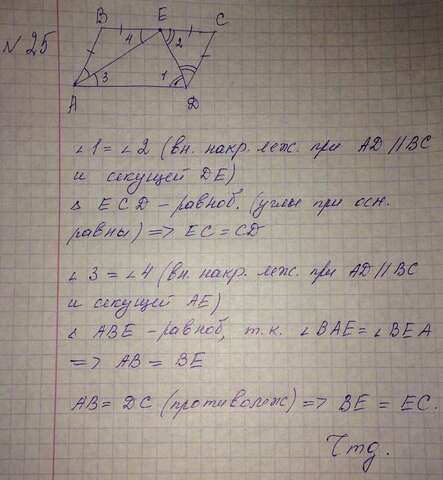 N 25
B E C
4 2
3 1
A D
∠1 = ∠2 (вн. накр. леж. при AD // BC
и секущей DE)
Δ ECD – равноб. (углы при осн.
равны) => EC = CD
∠3 = ∠4 (вн. накр. леж. при AD // BC
и секущей AE)
Δ ABE – равноб, т.к. ∠BAE = ∠BEA
=> AB = BE
AB = DC (противолеж) => BE = EC.
Чтд.